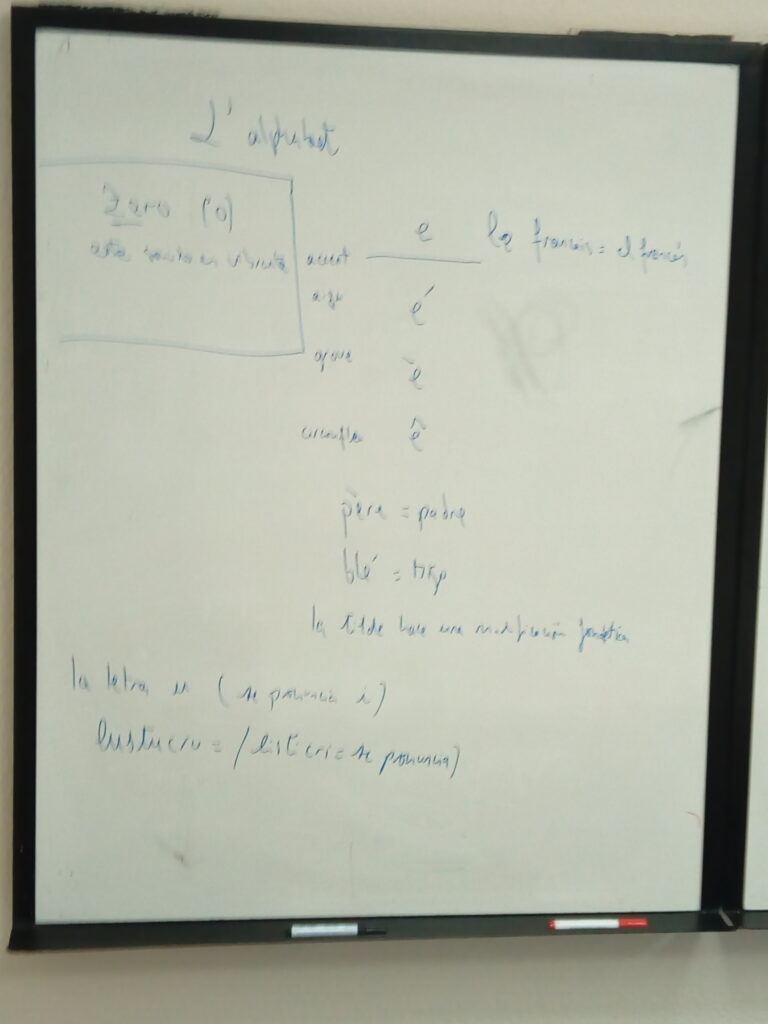 L'alphabet
Zoro (o)
e le francés = el francés
accent
aigu é
grave è
circonfle ê
père = padre
blé = trigo
la tilde hace una modificación fonética
la letra u (se pronuncia i)
lustucru = /listicri = se pronuncia)